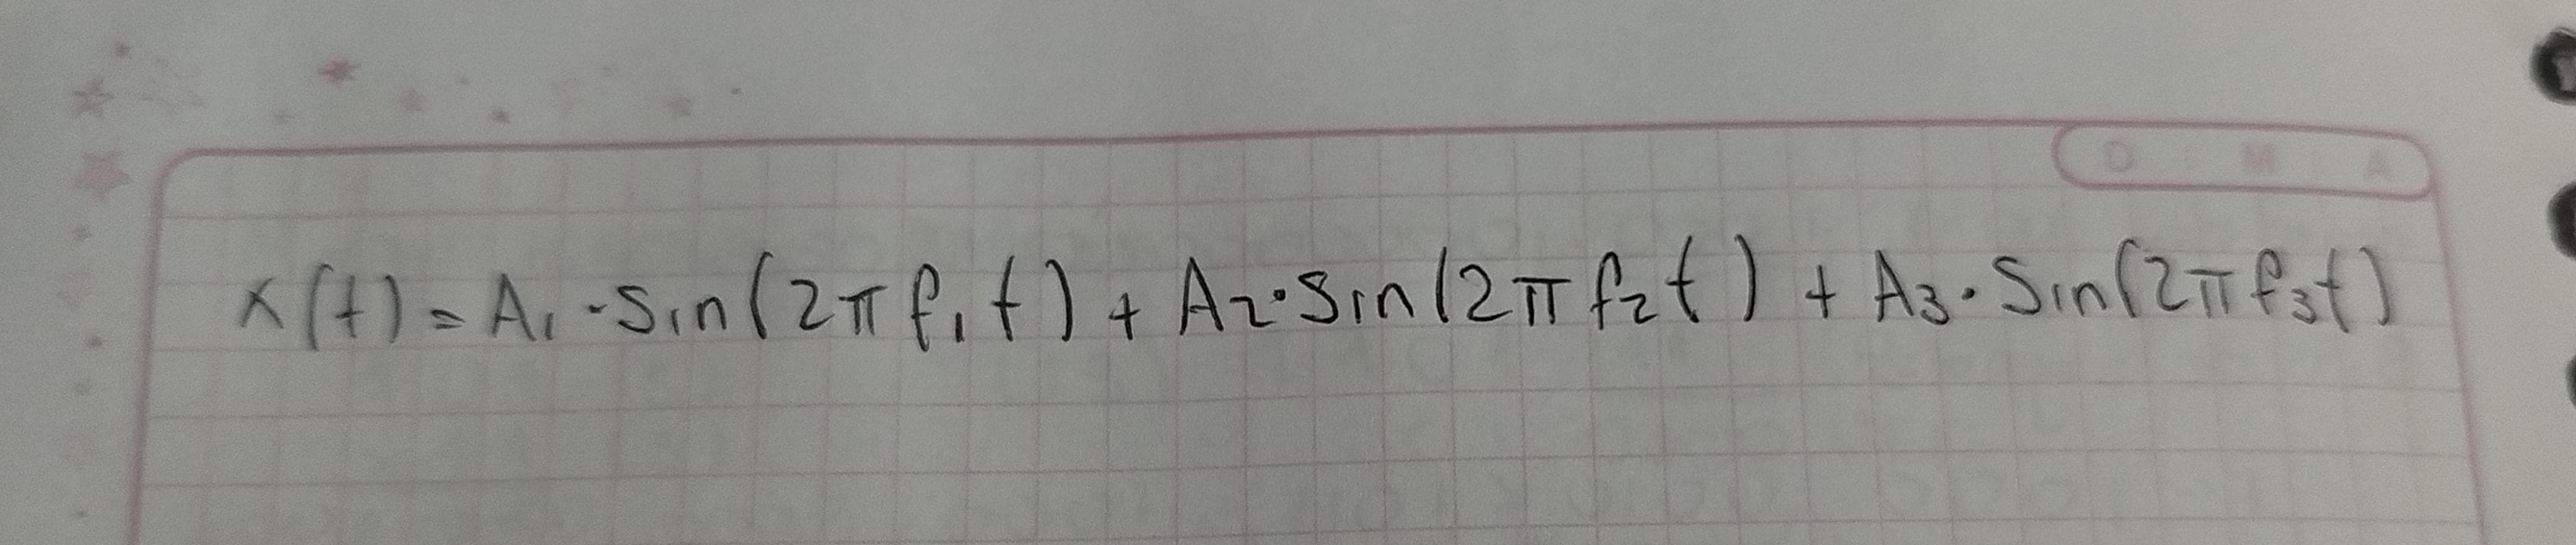 D M A
x(t) = A₁ · Sin(2π f₁ t) + A₂ · Sin(2π f₂ t) + A₃ · Sin(2π f₃ t)